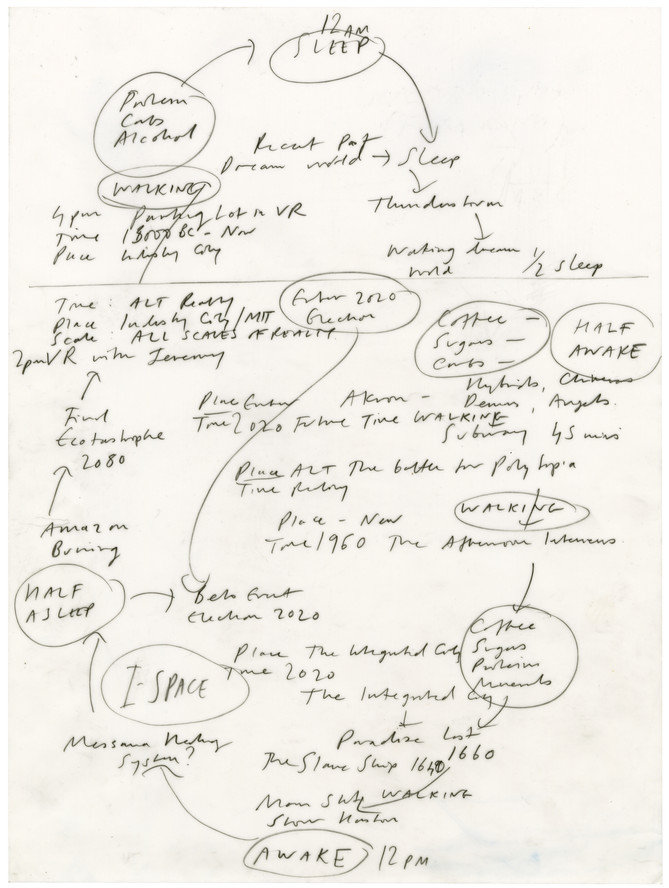 12 AM
SLEEP
Protein
Carbs
Alcohol
Recent Past
Dream world → Sleep
WALKING
Thunderstorm
4 pm Parking Lot in VR
Time 18000 BC - Now
Place Industry City
Waking dream
world
1/2 sleep
Time: ALT Reality
Place Industry City/MIT
Scale: ALL SCALES OF REALITY
2pm VR with Jeremy
Enter 2020
Election
Coffee -
Sugars -
Carbs -
HALF
AWAKE
Hybrids, Chimeras
Demons, Angels
Subway 45 mins
Place Enter
Time 2020 Future Time WALKING
Final
Ecotastrophe
2080
Place ALT The batter for Polytopia
Time Reality
WALKING
Place - Now
Time 1960 The Afternoon
Amazon
Burning
HALF
ASLEEP
Election 2020
Coffee
Sugars
Proteins
Minerals
Place The Integrated City
Time 2020
The Integrated City
I-SPACE
System?
Paradise Lost
1660
The Slave Ship 1640
WALKING
AWAKE 12 PM